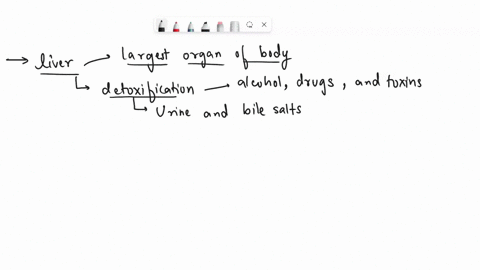 → liver → largest organ of body
↳ detoxification → alcohol, drugs, and toxins
↳ Urine and bile salts